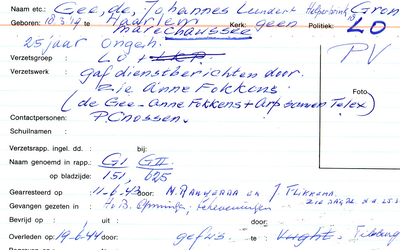 Naam etc.: Gee, de, Johannes Leendert Helperbrink, Gron
Geboren: 18.3.19 te Haarlem Kerk: geen Politiek: LO
Marechaussee
25 jaar ongeh.
Verzetsgroep : LO + LKP. PV
Verzetswerk : gaf dienstberichten door.
Zie Anne Fokkens Foto
(de Gee - Anne Fokkens + Arp samen Telex)
Contactpersonen: P. Cnossen.
Schuilnaam :
Verzetsrapp. ingel. dd. : bij:
Naam genoemd in rapp.: GI GII.
op bladzijde: 151, 625
Gearresteerd op : 11-6-43 door: N. en J Flikkema.
Gevangen gezeten in : H.v.B. Groningen, Scheveningen
Bevrijd op : uit : door:
Overleden op: 19.6.44 door: gefus. te : Vught. Tilburg